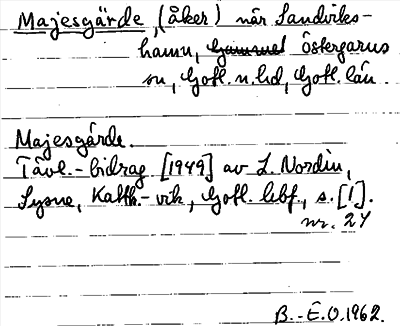 Majesgärde, (åker) när Sandviks-
hamn, Östergarns
sn, Gotl. n. hd, Gotl. län.
Majesgärde.
Tävl.-bidrag [1949] av L. Nordin,
Sysne, Katth.-vik, Gotl. lebf., s. [1].
nr. 24
B.-E.O. 1962.